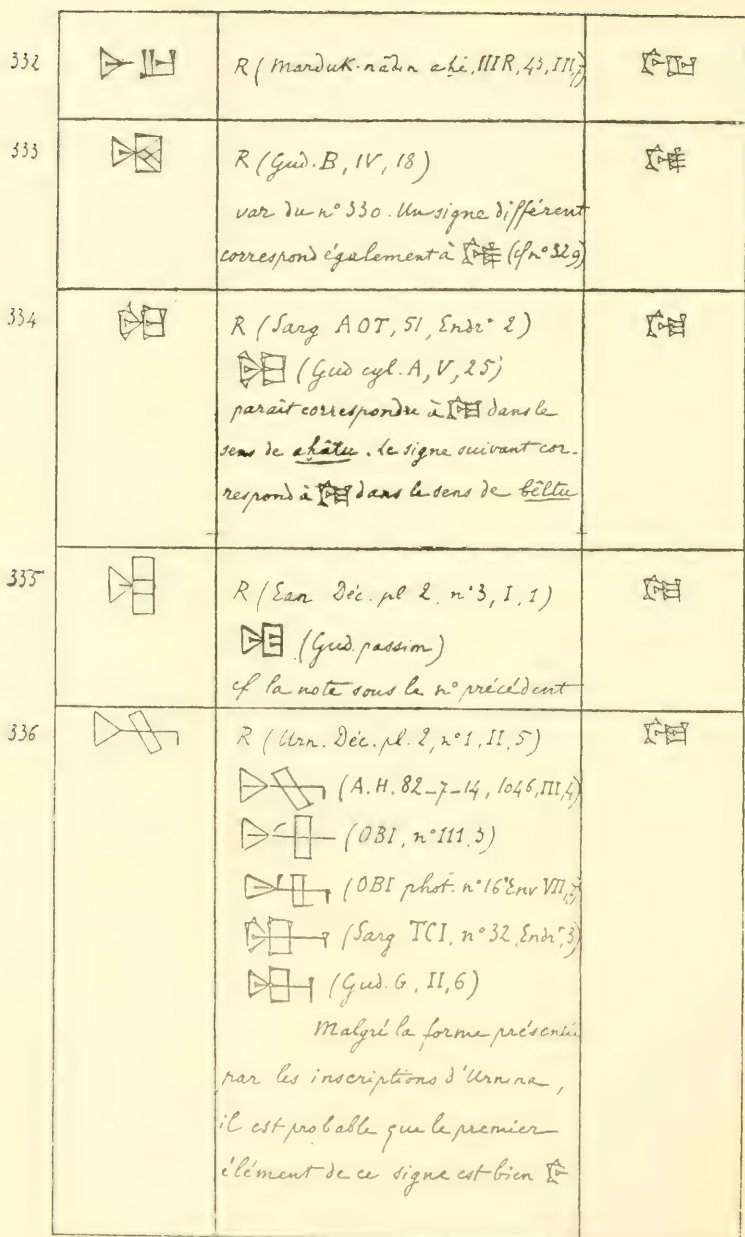 332 R (Marduk-nâdin aḫê, III R, 43, III,
333 R (Gud. B, IV, 18)
var du n° 330. Un signe différent
correspond également à (cf n° 329)
334 R (Sarg AOT, 51, Endr° 2)
(Gud cyl. A, V, 25)
paraît correspondre à dans le
sens de aḫâtu. Le signe suivant cor-
respond à dans le sens de bêltu
335 R (Ean Déc. pl 2, n° 3, I, 1)
(Gud. passim)
cf la note sous le n° précédent
336 R (Urn. Déc. pl. 2, n° 1, II, 5)
(A.H. 82-7-14, 1046, III, 4)
(OBI, n° 111, 3)
(OBI phot. n° 16 Env VII,
(Sarg TCI, n° 32, Endr°, 3)
(Gud. G, II, 6)
Malgré la forme présentée
par les inscriptions d'Urnina,
il est probable que le premier
élément de ce signe est bien